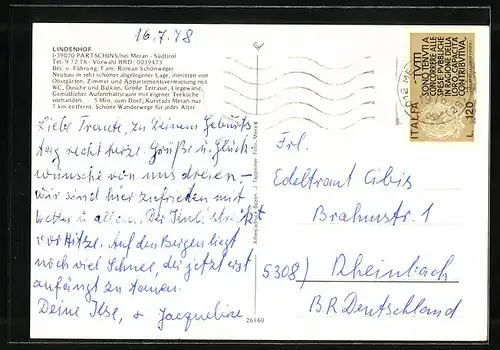 16.7.78
LINDENHOF
I-39020 PARTSCHINS/bei Meran - Südtirol
Tel. 9 72 18 - Vorwahl BRD: 0039473
Bes. u. Führung: Fam. Roman Schönweger
Neubau in sehr schöner abgelegener Lage, inmitten von
Obstgärten. Zimmer und Appartementsvermietung mit
WC, Dusche und Balkon. Große Terrasse, Liegewiese,
Gemütlicher Aufenthaltsraum mit eigener Teeküche
vorhanden. 5 Min. zum Dorf; Kurstadt Meran nur
7 km entfernt. Schöne Wanderwege für jedes Alter
Liebe Traute, zu Deinem Geburts
tag recht herzl. Grüße u. Glück
wünsche von uns dreien -
wir sind hier zufrieden mit
Wetter u allem. Der streikt
vor Hitze. Auf den Bergen liegt
noch viel Schnee, der jetzt erst
anfängt zu tauen.
Deine Ilse, + Jacqueline
26160
ITALIA
TUTTI
SONO TENUTI A
CONCORRERE ALLE
SPESE PUBBLICHE
IN RAGIONE DELLA
LORO CAPACITÀ
CONTRIBUTIVA
L. 120
Frl.
Edeltraut Cibis
Brahmstr. 1
5308) Rheinbach
BR Deutschland